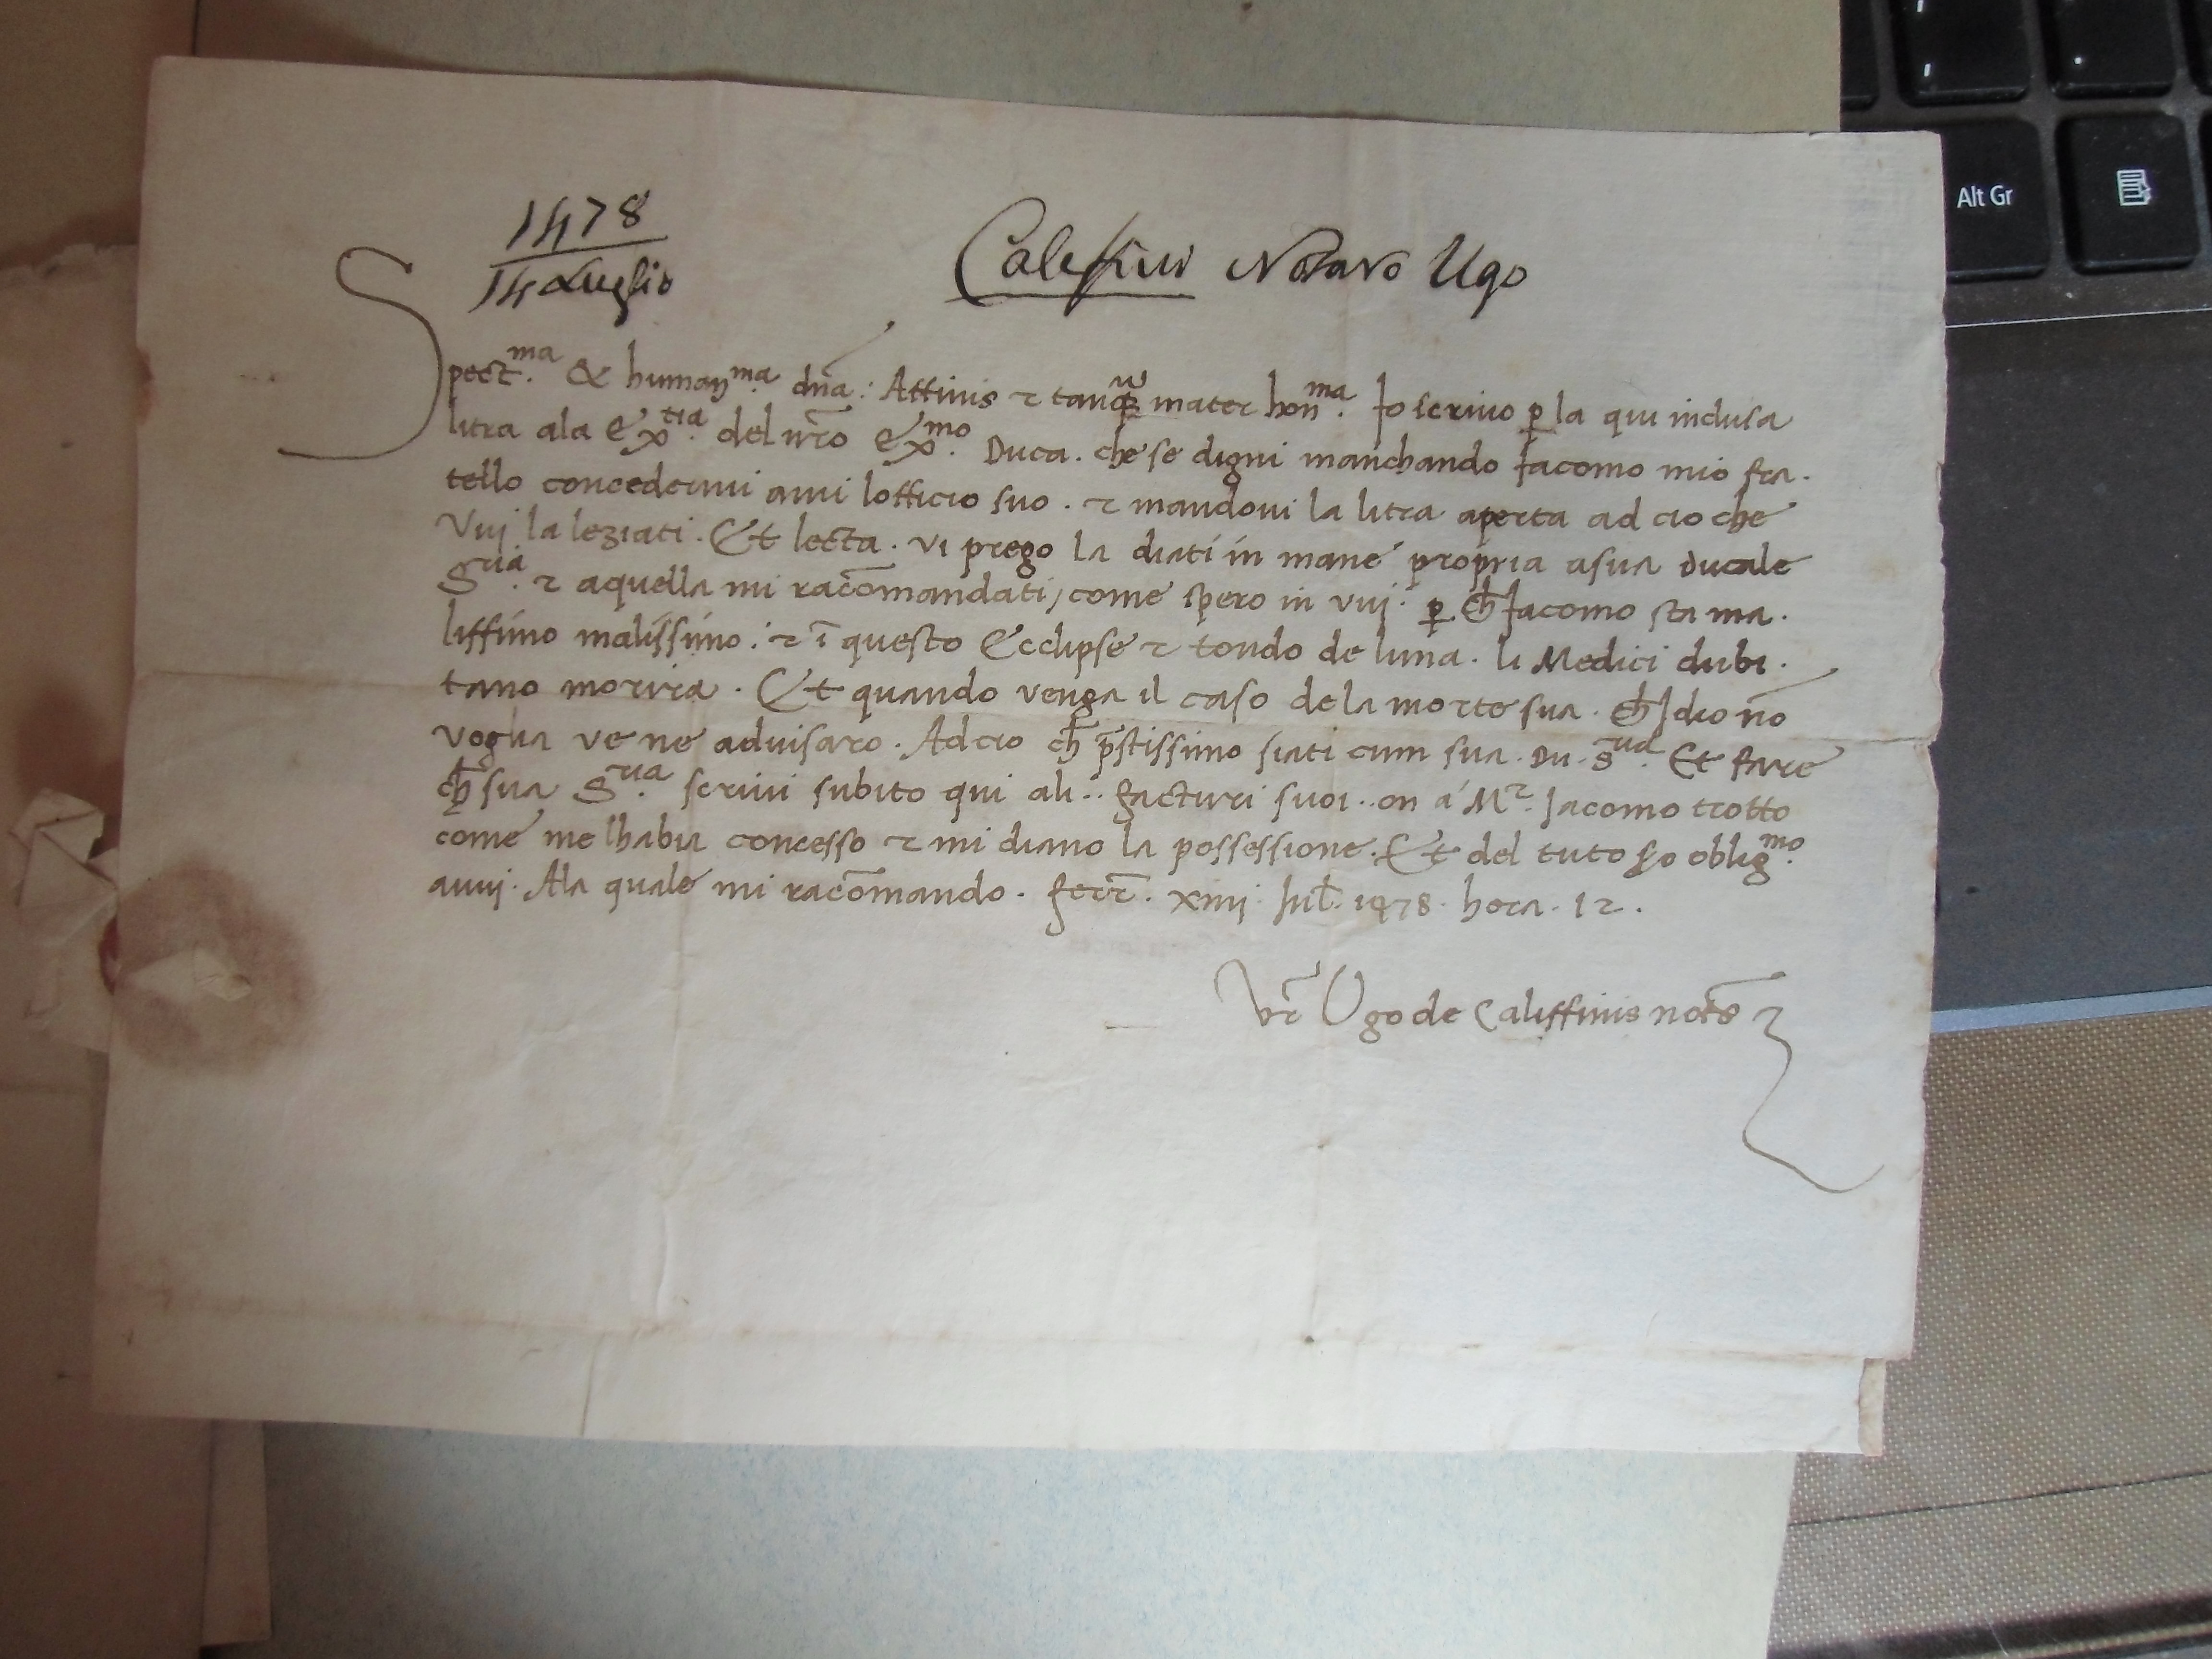 1478
14 Luglio
Caleffini Notaro Ugo
Spect.ma & human.ma dna: Affinis & tanq mater hon.ma Io scrivo p la qui inclusa
litra ala Ex.tia del nro Ex.mo Duca. che se digni manchando Iacomo mio fra.
tello concedermi ami lofficio suo. & mandovi la litra aperta ad cio che
Vuj la leziati. Et lecta. vi prego la diati in mane propria a sua ducale
S.ria & aquella mi racomandati, come spero in vuj. p ch Iacomo sta ma.
lissimo malissimo: & i questo Ecclipse & tondo de luna. li Medici dubi.
tano morira. Et quando venga il caso de la morte sua. ch Idio no
voglia ve ne advisaro. Ad cio ch pstissimo siati cum sua. Du. S.ria Et fare
ch sua S.ria scrivi subito qui ali.. facturi suoi.. on a Mr. Iacomo trotto
come me lhabia concesso & mi diano la possessione. Et del tuto so oblig.mo
avuj. Ala quale mi racomando. Ferr. xiiij Jul. 1478. hora. 12.
Vr Ugo de Califfinis nots
Alt Gr